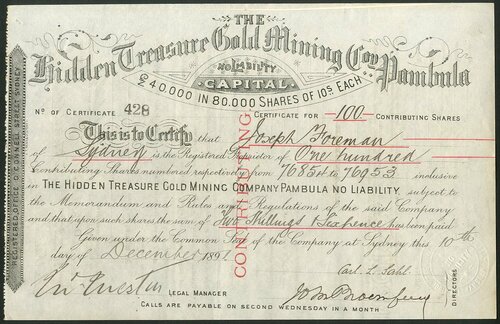 THE
Hidden Treasure Gold Mining Coy Pambula
NO LIABILITY
CAPITAL
£40,000 IN 80,000 SHARES OF 10S EACH
No OF CERTIFICATE 428
CERTIFICATE FOR -100- CONTRIBUTING SHARES
This is to Certify that Joseph Foreman
of Sydney is the Registered Proprietor of One hundred
Contributing Shares numbered respectively from 76854 to 76953 inclusive
in THE HIDDEN TREASURE GOLD MINING COMPANY PAMBULA NO LIABILITY subject to
the Memorandum and Rules and Regulations of the said Company
and that upon such shares the sum of Two Shillings & Sixpence has been paid
Given under the Common Seal of the Company at Sydney this 10th
day of December 1891
CONTRIBUTING
LEGAL MANAGER
DIRECTORS
CALLS ARE PAYABLE ON SECOND WEDNESDAY IN A MONTH
REGISTERED OFFICE O'CONNELL STREET SYDNEY